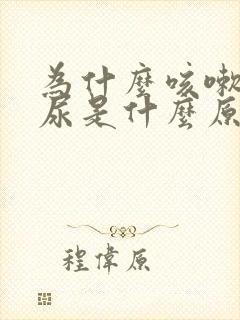 為什麼咳嗽
尿是什麼原
程偉原